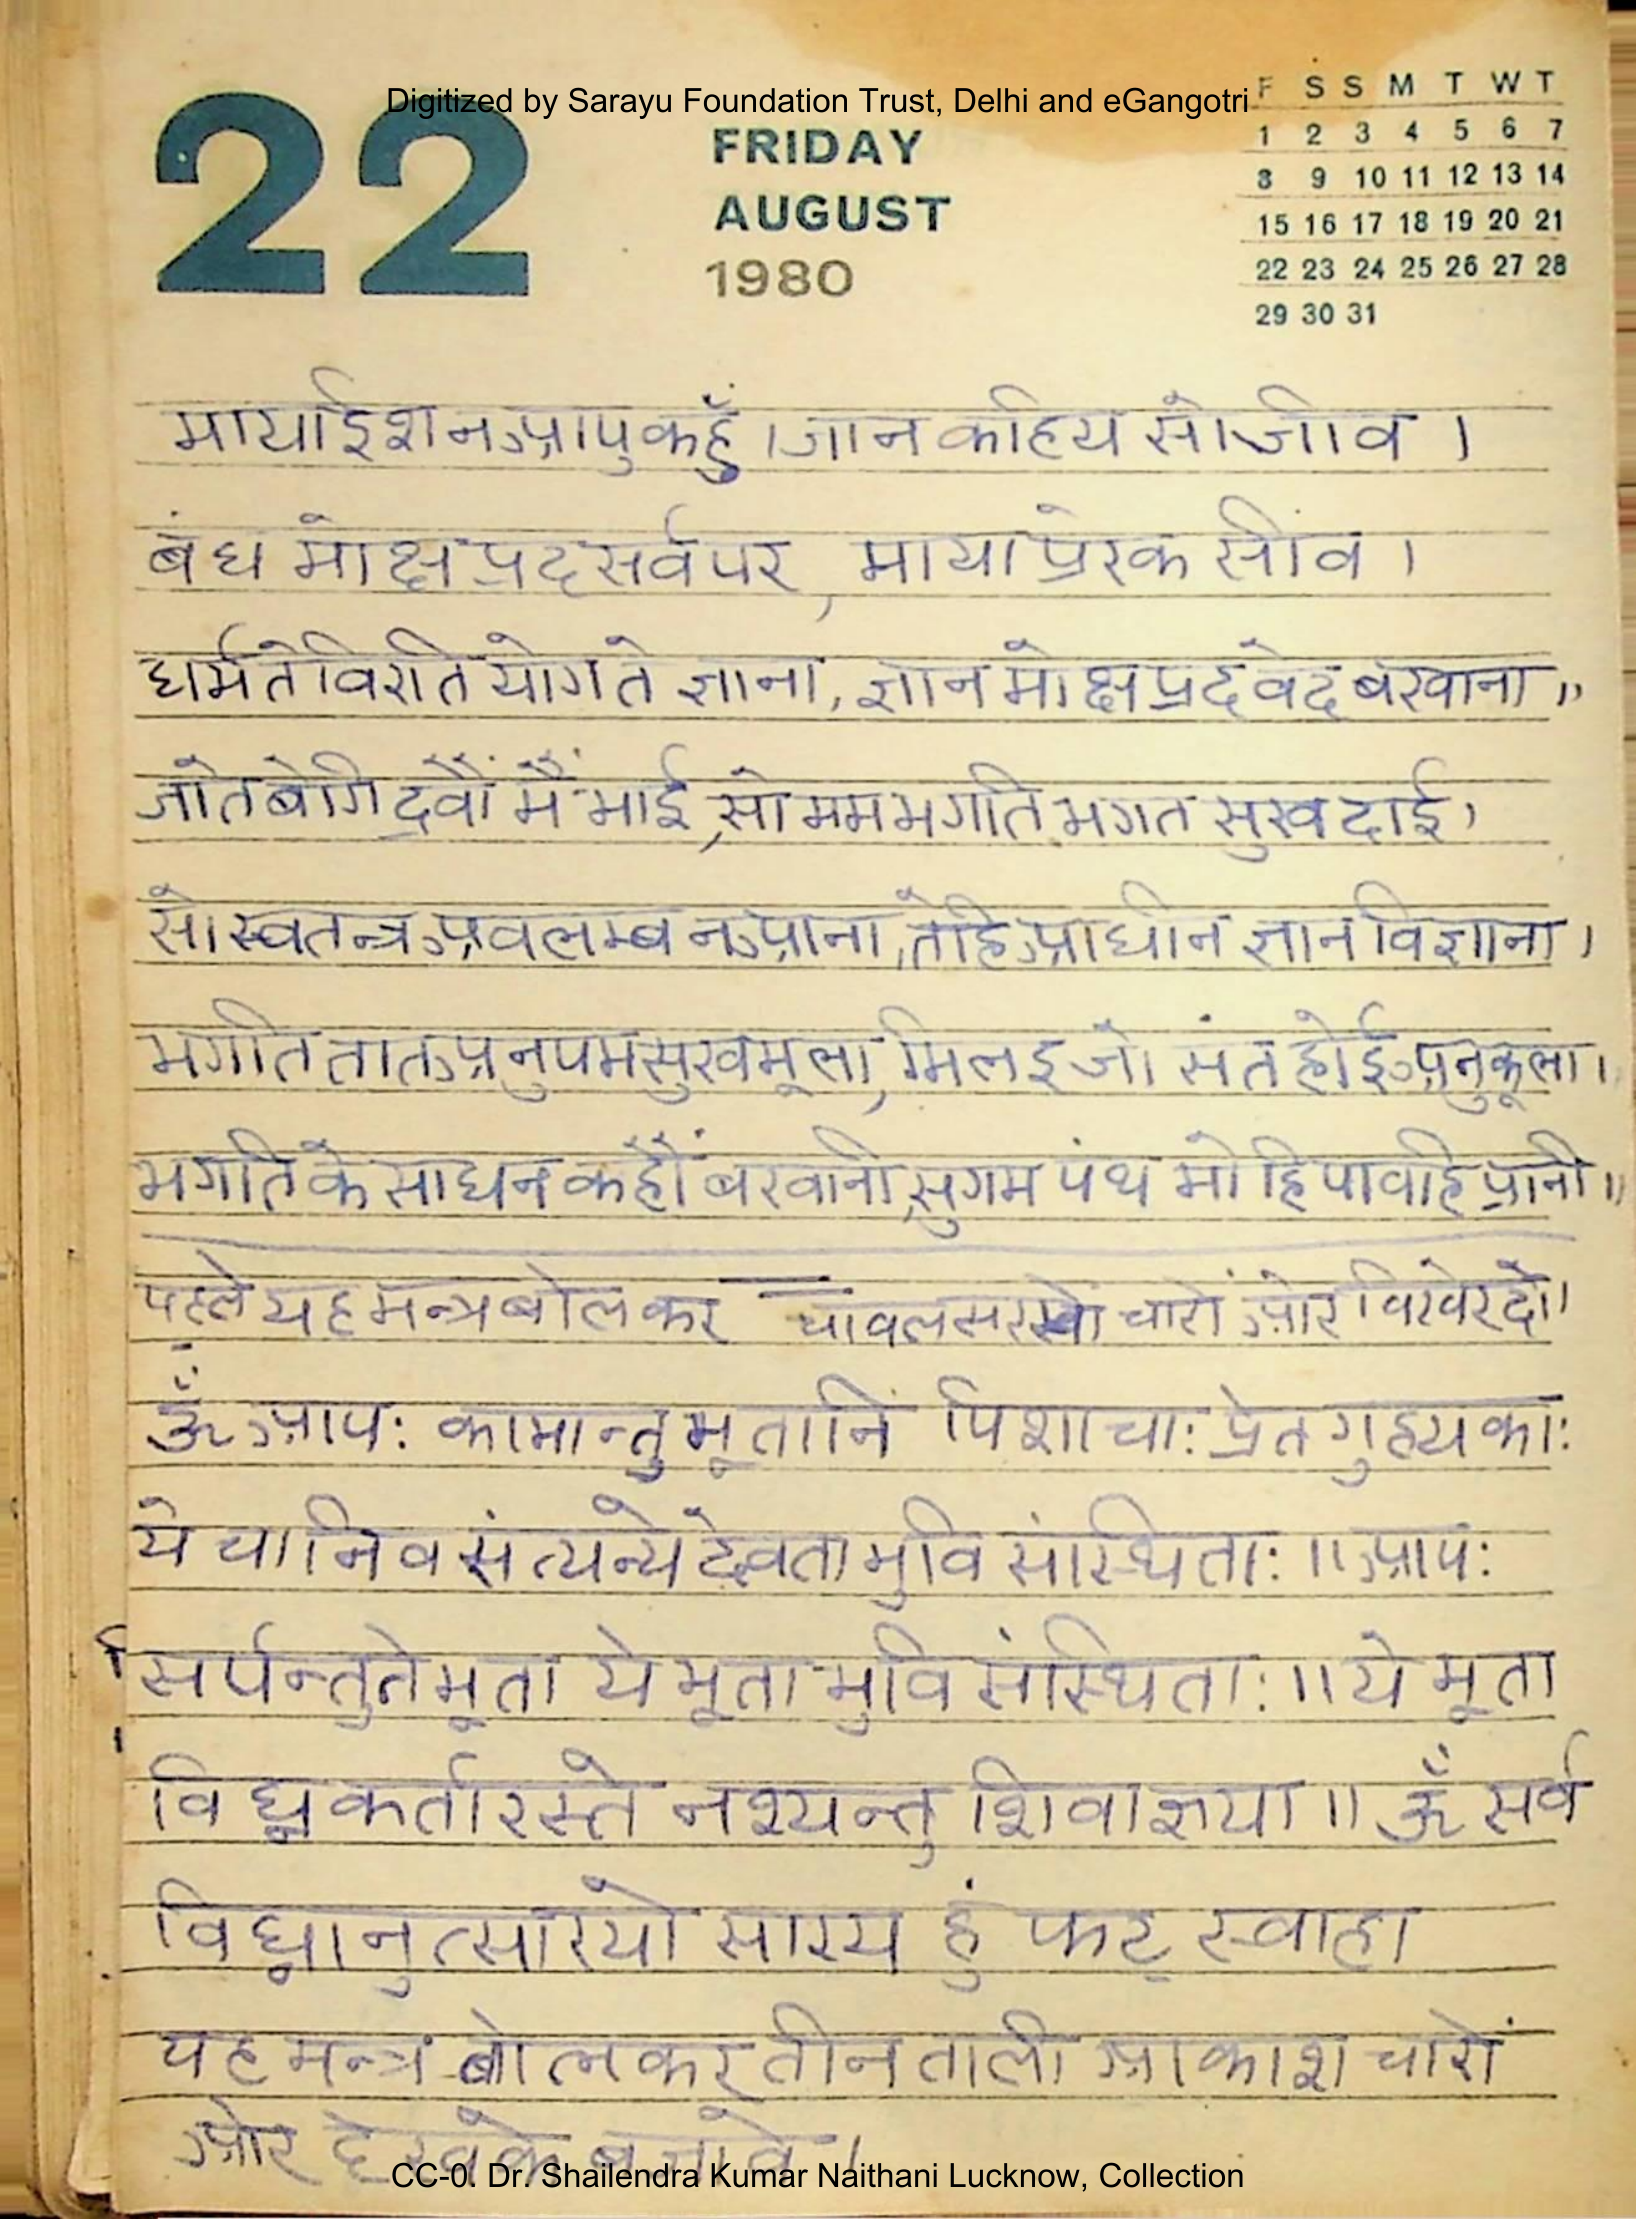 Digitized by Sarayu Foundation Trust, Delhi and eGangotri
22
FRIDAY
AUGUST
1980
F S S M T W T
1 2 3 4 5 6 7
8 9 10 11 12 13 14
15 16 17 18 19 20 21
22 23 24 25 26 27 28
29 30 31
माया ईश न आपु कहुँ । जान कहिय सो जीव ।
बंध मोक्ष प्रद सर्व पर, माया प्रेरक सीव ।
धर्म ते विरति योग ते ज्ञाना, ज्ञान मोक्ष प्रद वेद बखाना ॥
जाते बेगि द्रवौं मैं भाई, सो मम भगति भगत सुखदाई ।
सो स्वतन्त्र अवलम्ब न आना, तेहि आधीन ज्ञान विज्ञाना ।
भगति तात अनुपम सुखमूला, मिलइ जो संत होई अनुकूला ।
भगति के साधन कहौं बखानी, सुगम पंथ मोहि पावहि प्रानी ॥
पहले यह मन्त्र बोलकर चावल सरसों चारों ओर विखेर दो ।
ॐ आपः क्रामान्तु भूतानि पिशाचाः प्रेत गुहयकाः
ये चा निवसंत्यन्ये देवता भुवि संस्थिताः ॥ आपः
सर्पन्तु ते भूता ये भूता भुवि संस्थिताः ॥ ये भूता
विघ्न कर्तारस्ते नश्यन्तु शिवाज्ञया ॥ ॐ सर्व
विघ्नानुत्सारयो सारय हुं फट् स्वाहा
यह मन्त्र बोलकर तीन ताली आकाश चारों
ओर देखके बजावे ।
CC-0. Dr. Shailendra Kumar Naithani Lucknow, Collection